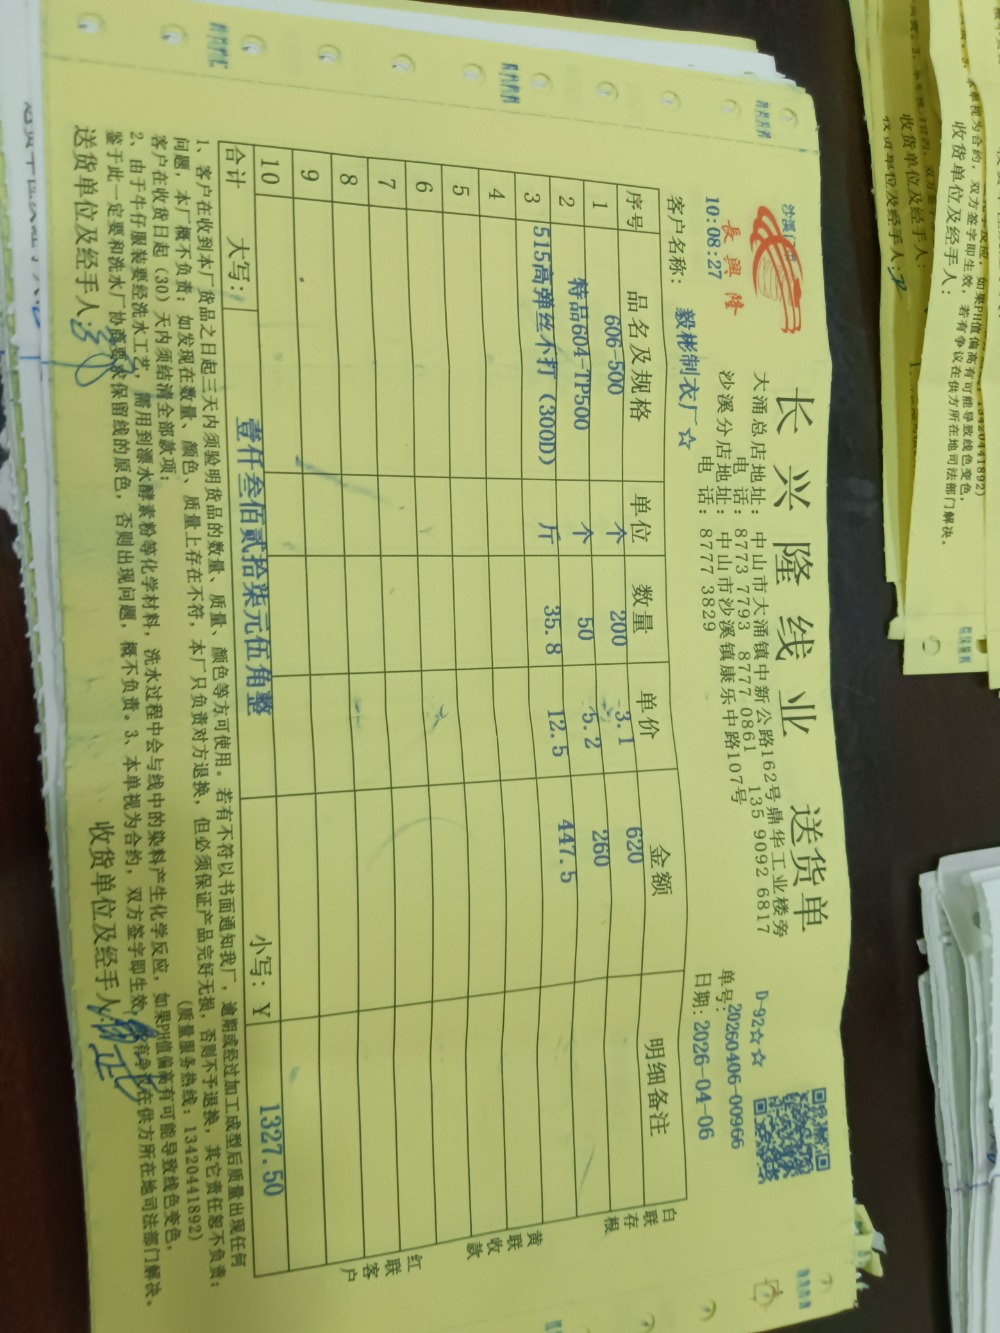 长兴隆线业 送货单
沙溪
長興隆
大涌总店地址：中山市大涌镇中新公路162号鼎华工业楼旁
电话：8773 7793 8777 0861 135 9092 6817
沙溪分店地址：中山市沙溪镇康乐中路107号
电话：8777 3829
D-92☆☆
单号：20260406-00966
10:08:27
日期：2026-04-06
客户名称：毅彬制衣厂☆
序号 品名及规格 单位 数量 单价 金额 明细备注
1 606-500 个 200 3.1 620
2 特品604-TP500 个 50 5.2 260
3 515高弹丝不打（300D） 斤 35.8 12.5 447.5
4
5
6
7
8
9
10
合计 大写：壹仟叁佰贰拾柒元伍角整 小写：¥ 1327.50
白联存根
黄联收款
红联客户
1、客户在收到本厂货品之日起三天内须验明货品的数量、质量、颜色等方可使用。若有不符以书面通知我厂，逾期或经过加工成型后质量出现任何
问题，本厂概不负责；如发现在数量、颜色、质量上存在不符，本厂只负责对方退换，但必须保证产品完好无损，否则不予退换，其它责任恕不负责；
客户在收货日起（30）天内须结清全部款项； （质量服务热线：13420441892）
2、由于牛仔服装要经洗水工艺，需用到漂水酵素粉等化学材料，洗水过程中会与线中的染料产生化学反应，如果PH值偏高有可能导致线色变色，
鉴于此一定要和洗水厂协商要求保留线的原色，否则出现问题，概不负责。3、本单视为合约，双方签字即生效，若有争议在供方所在地司法部门解决。
送货单位及经手人： 收货单位及经手人：
如果PH值偏高有可能导致线色变色，
本单视为合约，双方签字即生效，若有争议在供方所在地司法部门解决。
收货单位及经手人：
收货单位及经手人：